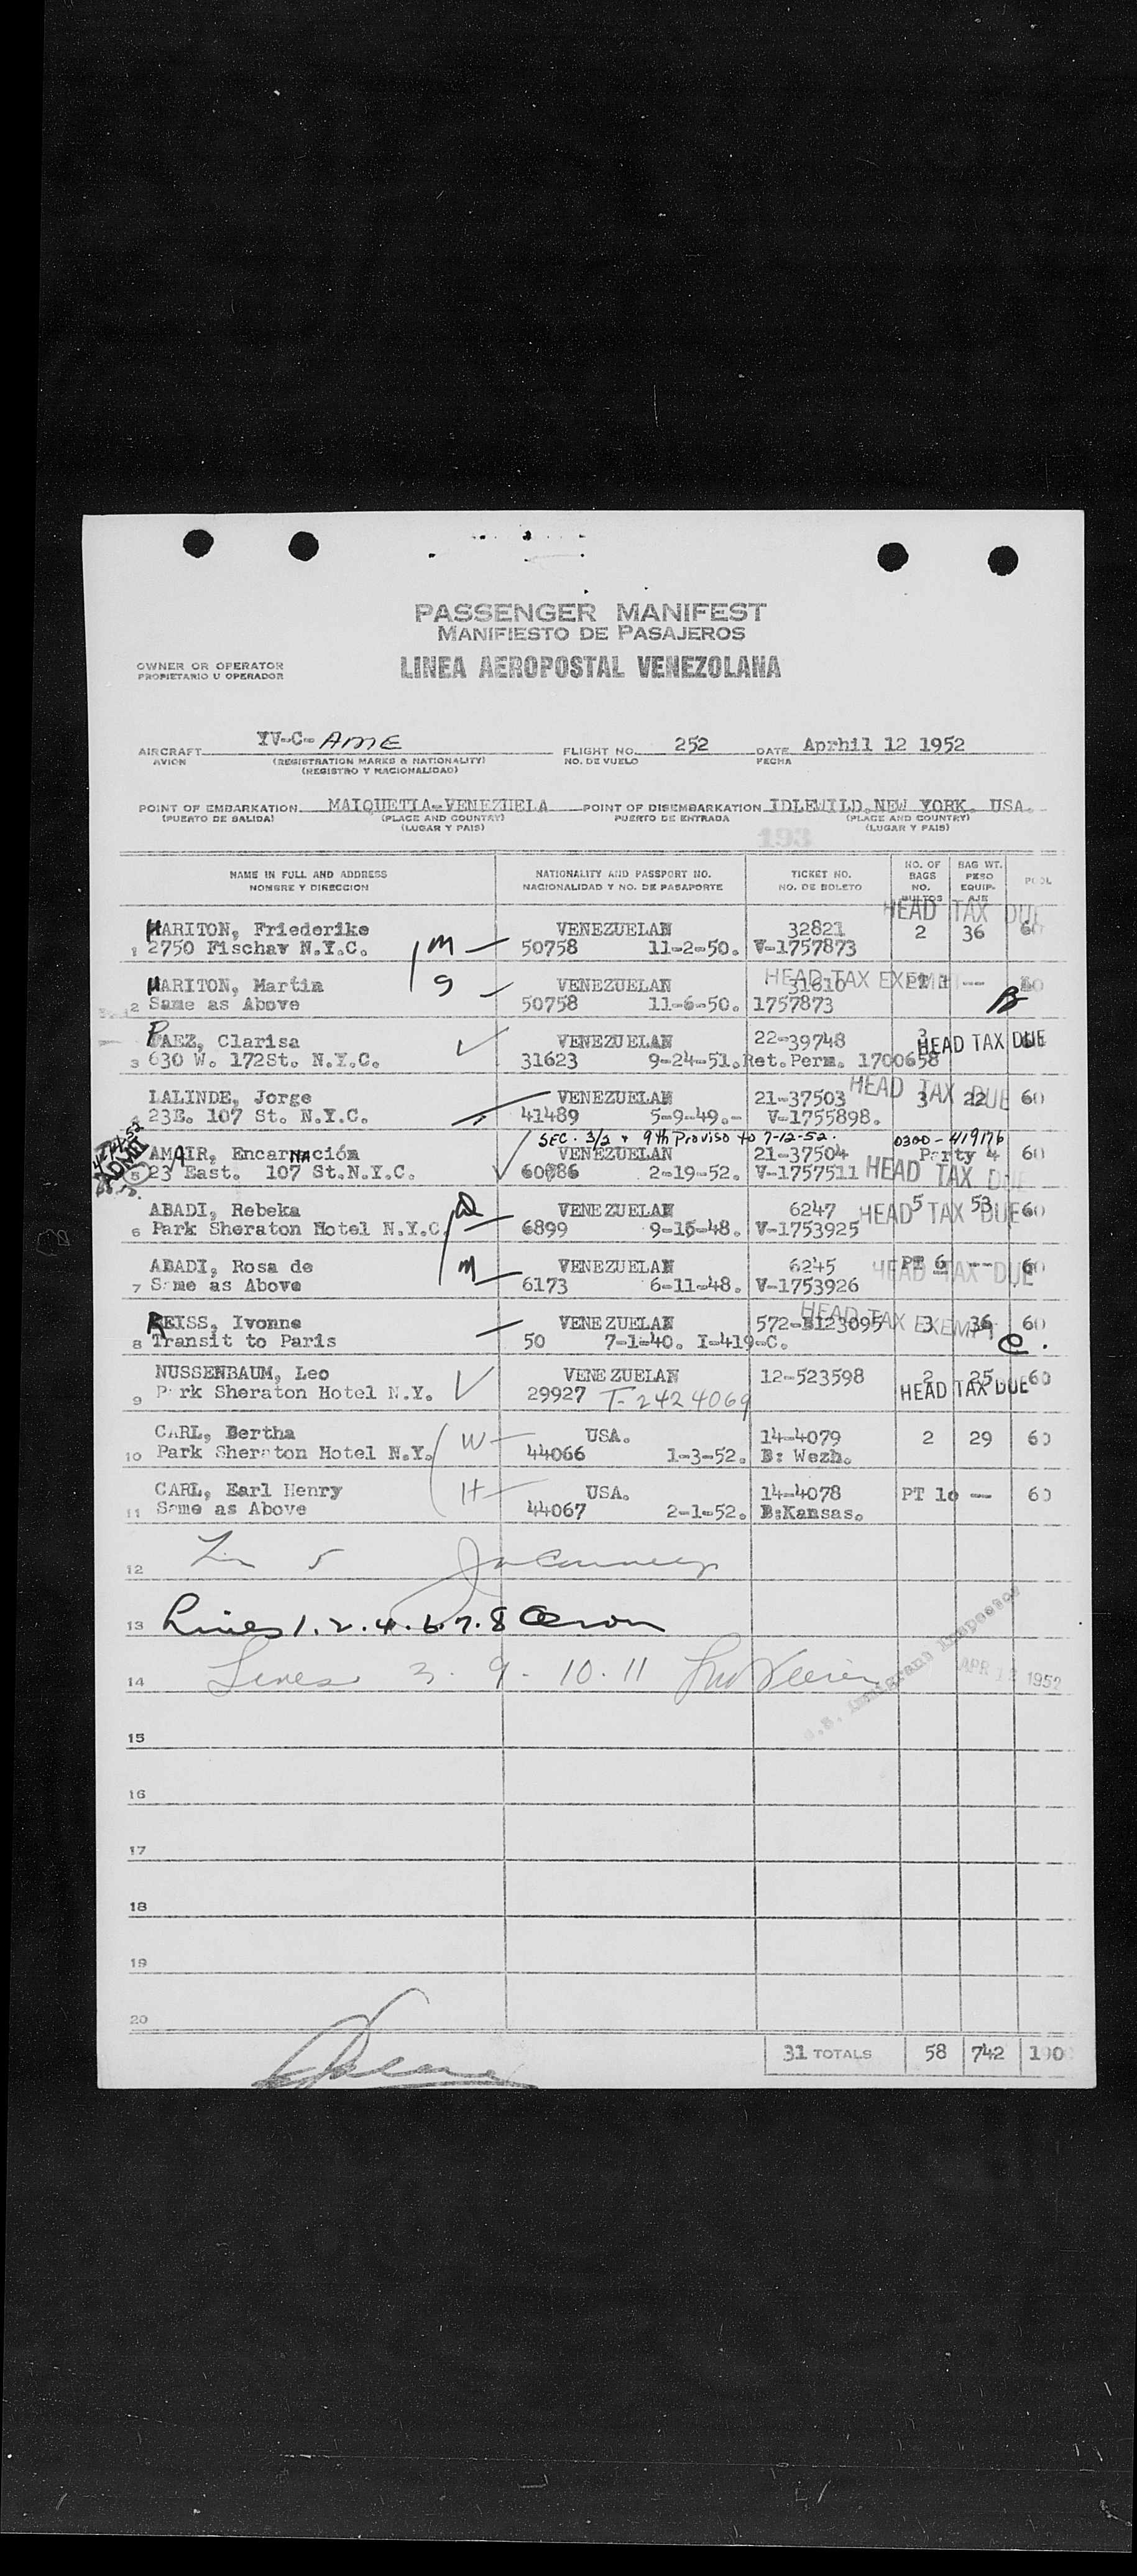 PASSENGER MANIFEST
MANIFIESTO DE PASAJEROS
OWNER OR OPERATOR
PROPIETARIO U OPERADOR
LINEA AEROPOSTAL VENEZOLANA
AIRCRAFT YV-C- AME FLIGHT NO. 252 DATE Aprhil 12 1952
AVION (REGISTRATION MARKS & NATIONALITY) NO. DE VUELO FECHA
(REGISTRO Y NACIONALIDAD)
POINT OF EMBARKATION MAIQUETIA-VENEZUELA POINT OF DISEMBARKATION IDLEWILD.NEW YORK. USA.
(PUERTO DE SALIDA) (PLACE AND COUNTRY) PUERTO DE ENTRADA (PLACE AND COUNTRY)
(LUGAR Y PAIS) (LUGAR Y PAIS)
193
NAME IN FULL AND ADDRESS NATIONALITY AND PASSPORT NO. TICKET NO. NO. OF BAGS BAG WT. POOL
NOMBRE Y DIRECCION NACIONALIDAD Y NO. DE PASAPORTE NO. DE BOLETO NO. BULTOS PESO EQUIP-AJE
HEAD TAX DUE
HARITON, Friederike VENEZUELAN 32821 2 36 60
1 2750 Fischav N.Y.C. M 50758 11-2-50. V-1757873
HEAD TAX EXEMPT
HARITON, Martin S VENEZUELAN 31610 PT 1 -- 60
2 Same as Above 50758 11-6-50. 1757873
PAEZ, Clarisa VENEZUELAN 22-39748 3 HEAD TAX DUE
3 630 W. 172St. N.Y.C. 31623 9-24-51. Ret.Perm. 1700658
LALINDE, Jorge VENEZUELAN 21-37503 3 22 60 HEAD TAX DUE
4 23E. 107 St. N.Y.C. 41489 5-9-49.- V-1755898.
SEC. 3/2 + 9th Proviso to 7-12-52. 0300-419176
ADMIT
AMAIR, Encarnación VENEZUELAN 21-37504 Party 4 60
5 23 East. 107 St.N.Y.C. 60886 2-19-52. V-1757511 HEAD TAX DUE
ABADI, Rebeka D VENEZUELAN 6247 5 53 60 HEAD TAX DUE
6 Park Sheraton Hotel N.Y.C. 6899 9-15-48. V-1753925
ABADI, Rosa de M VENEZUELAN 6245 PT 6 -- 60 HEAD TAX DUE
7 Same as Above 6173 6-11-48. V-1753926
HEAD TAX EXEMPT
REISS, Ivonne VENEZUELAN 572-B123095 3 36 60
8 Transit to Paris 50 7-1-40. I-419-C. C.
NUSSENBAUM, Leo VENEZUELAN 12-523598 2 25 60
9 Park Sheraton Hotel N.Y. 29927 T-2424069 HEAD TAX DUE
CARL, Bertha W USA. 14-4079 2 29 60
10 Park Sheraton Hotel N.Y. 44066 1-3-52. B: Wezh.
CARL, Earl Henry H USA. 14-4078 PT 10 -- 60
11 Same as Above 44067 2-1-52. B:Kansas.
12 5
13 Lines 1.2.4.6.7.8
14 Lines 3. 9 - 10. 11
U.S. Immigrant Inspector
APR 12 1952
15
16
17
18
19
20
31 TOTALS 58 742